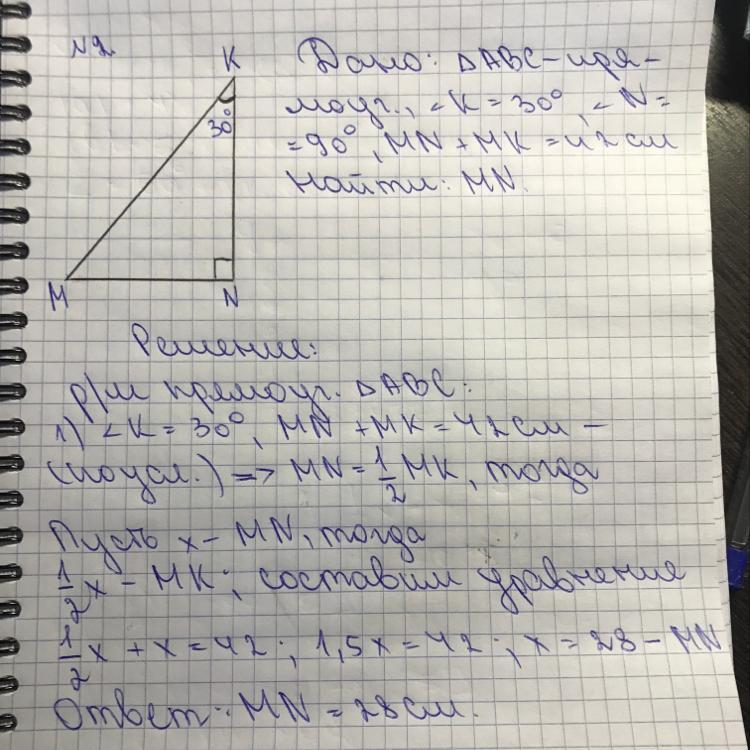 №2.
K
30°
M
N
Дано: ΔABC – пря-
моуг., ∠K = 30°, ∠N =
= 90°, MN + MK = 42 см
Найти: MN.
Решение:
р/м прямоуг. ΔABC:
1) ∠K = 30°, MN + MK = 42 см –
(по усл.) => MN = 1/2 MK, тогда
Пусть x – MN, тогда
1/2 x – MK; составим уравнения
1/2 x + x = 42; 1,5x = 42; x = 28 – MN
Ответ: MN = 28 см.